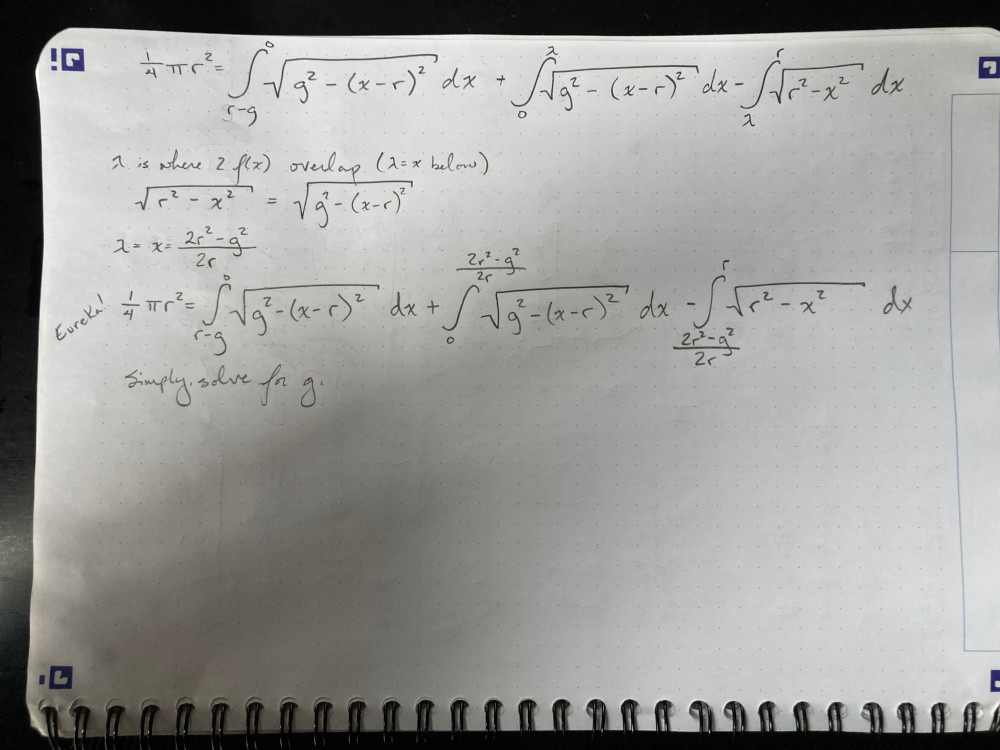 1/4 πr² = ∫_{r-g}^{0} √(g² - (x-r)²) dx + ∫_{0}^{λ} √(g² - (x-r)²) dx - ∫_{λ}^{r} √(r² - x²) dx
λ is where 2 f(x) overlap (λ=x below)
√(r² - x²) = √(g² - (x-r)²)
λ = x = (2r² - g²)/2r
Eureka! 1/4 πr² = ∫_{r-g}^{0} √(g² - (x-r)²) dx + ∫_{0}^{(2r² - g²)/2r} √(g² - (x-r)²) dx - ∫_{(2r² - g²)/2r}^{r} √(r² - x²) dx
Simply, solve for g.